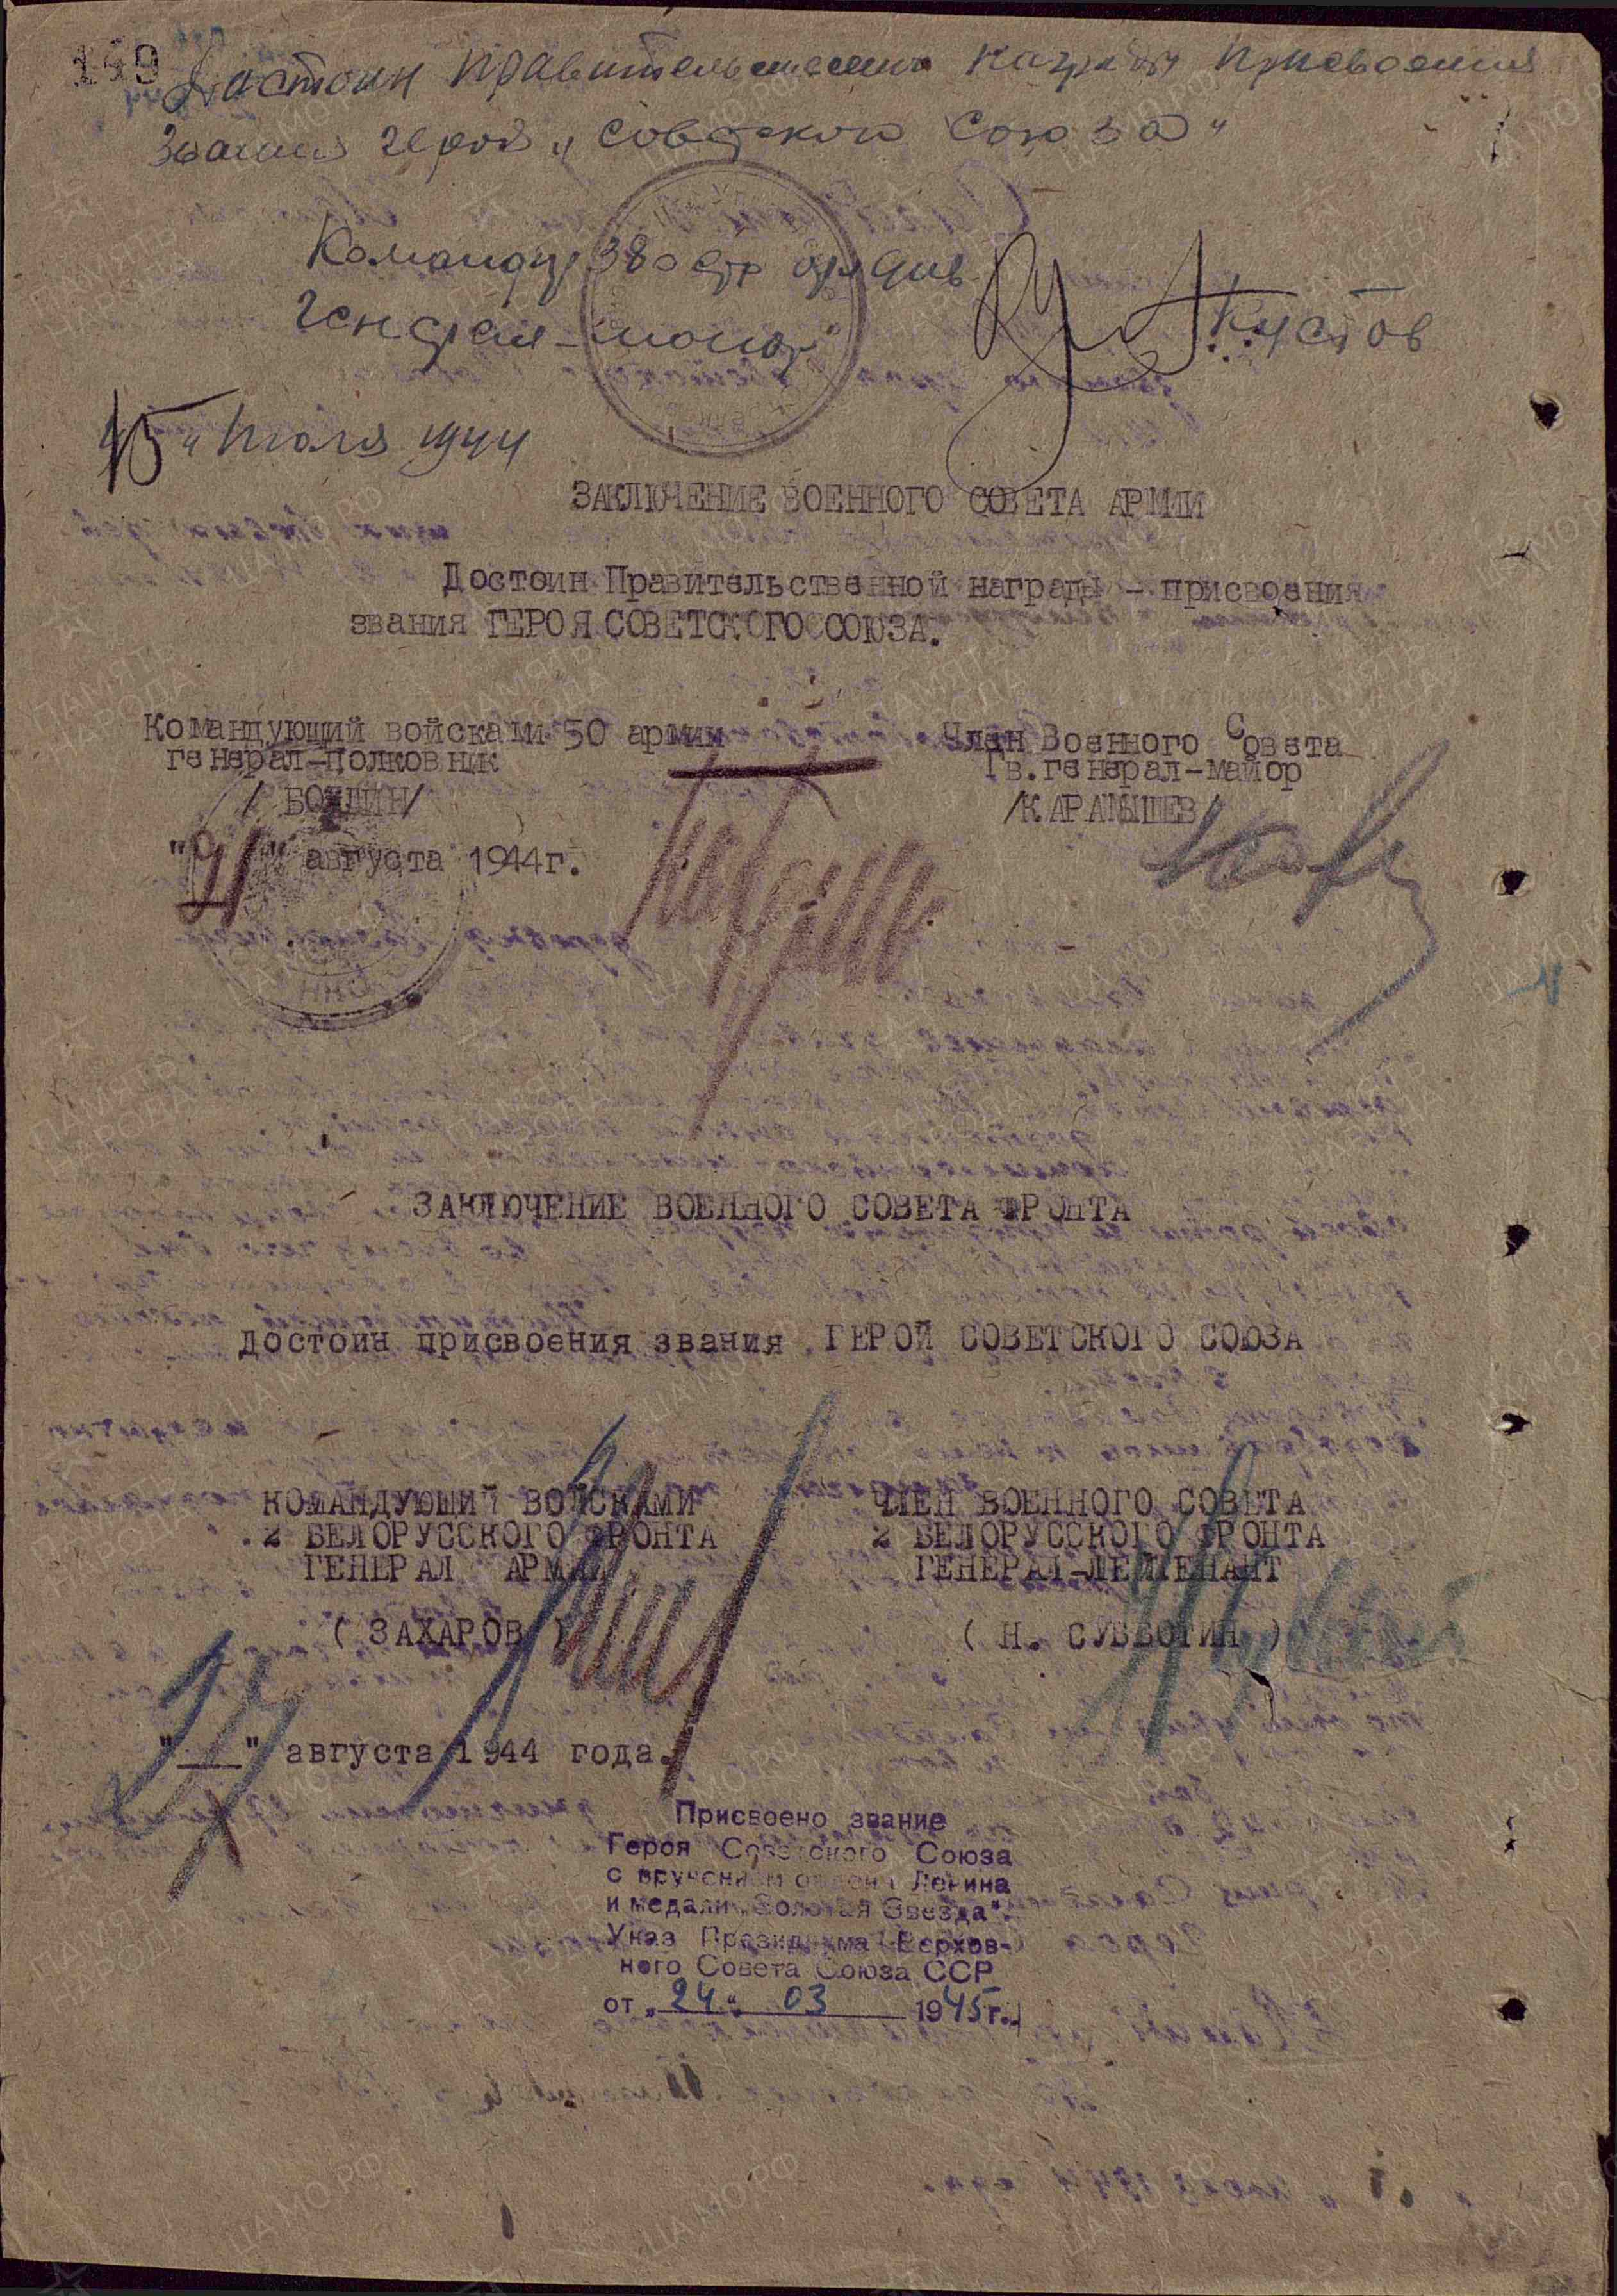 149
Достоин правительственной награды присвоения
звания героя „Советского Союза"
Командир 380 стр орд див
генерал-майор Кустов
15 " июля 1944
ЗАКЛЮЧЕНИЕ ВОЕННОГО СОВЕТА АРМИИ
Достоин Правительственной награды - присвоения
звания ГЕРОЯ СОВЕТСКОГО СОЮЗА.
Командующий войсками 50 армии Член Военного Совета
генерал-полковник Гв.генерал-майор
/ БОЛДИН/ /КАРАМЫШЕВ/
" " августа 1944г.
ЗАКЛЮЧЕНИЕ ВОЕННОГО СОВЕТА ФРОНТА
достоин присвоения звания ГЕРОЙ СОВЕТСКОГО СОЮЗА
КОМАНДУЮЩИЙ ВОЙСКАМИ ЧЛЕН ВОЕННОГО СОВЕТА
2 БЕЛОРУССКОГО ФРОНТА 2 БЕЛОРУССКОГО ФРОНТА
ГЕНЕРАЛ АРМИИ ГЕНЕРАЛ-ЛЕЙТЕНАНТ
( ЗАХАРОВ ) ( Н. СУББОТИН )
" " августа 1944 года.
Присвоено звание
Героя Советского Союза
с вручением ордена Ленина
и медали „Золотая Звезда".
Указ Президиума Верхов-
ного Совета Союза ССР
от „24" 03 1945г.